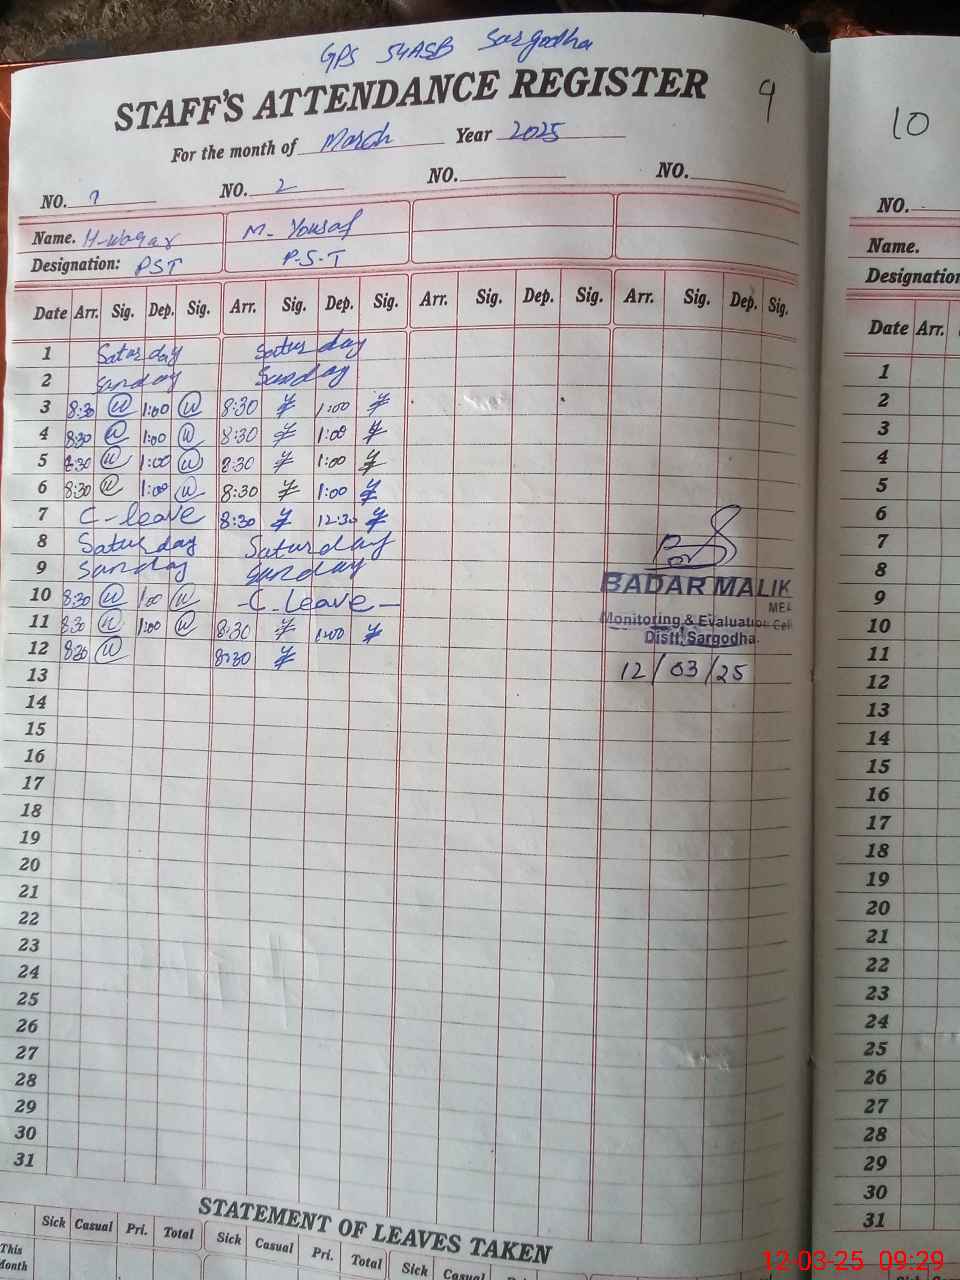 GPS 54ASB Sargodha
STAFF'S ATTENDANCE REGISTER 9
For the month of March Year 2025
NO. 1 NO. 2 NO. NO.
Name. M-Waqar M. Yousaf
Designation: PST P.S.T
Date Arr. Sig. Dep. Sig. Arr. Sig. Dep. Sig. Arr. Sig. Dep. Sig. Arr. Sig. Dep. Sig.
1 Saturday Saturday
2 Sunday Sunday
3 8:30 1:00 8:30 1:00
4 8:30 1:00 8:30 1:00
5 8:30 1:00 8:30 1:00
6 8:30 1:00 8:30 1:00
7 C-leave 8:30 12:30
8 Saturday Saturday
9 Sunday Sunday
10 8:30 1:00 -C-leave-
11 8:30 1:00 8:30 1:00
12 8:30 8:30
13
14
15
16
17
18
19
20
21
22
23
24
25
26
27
28
29
30
31
BADAR MALIK
MEA
Monitoring & Evaluation Cell
Distt. Sargodha.
12/03/25
STATEMENT OF LEAVES TAKEN
Sick Casual Pri. Total Sick Casual Pri. Total Sick Casual
This
Month
10
NO.
Name.
Designation
Date Arr.
1
2
3
4
5
6
7
8
9
10
11
12
13
14
15
16
17
18
19
20
21
22
23
24
25
26
27
28
29
30
31
12-03-25 09:29